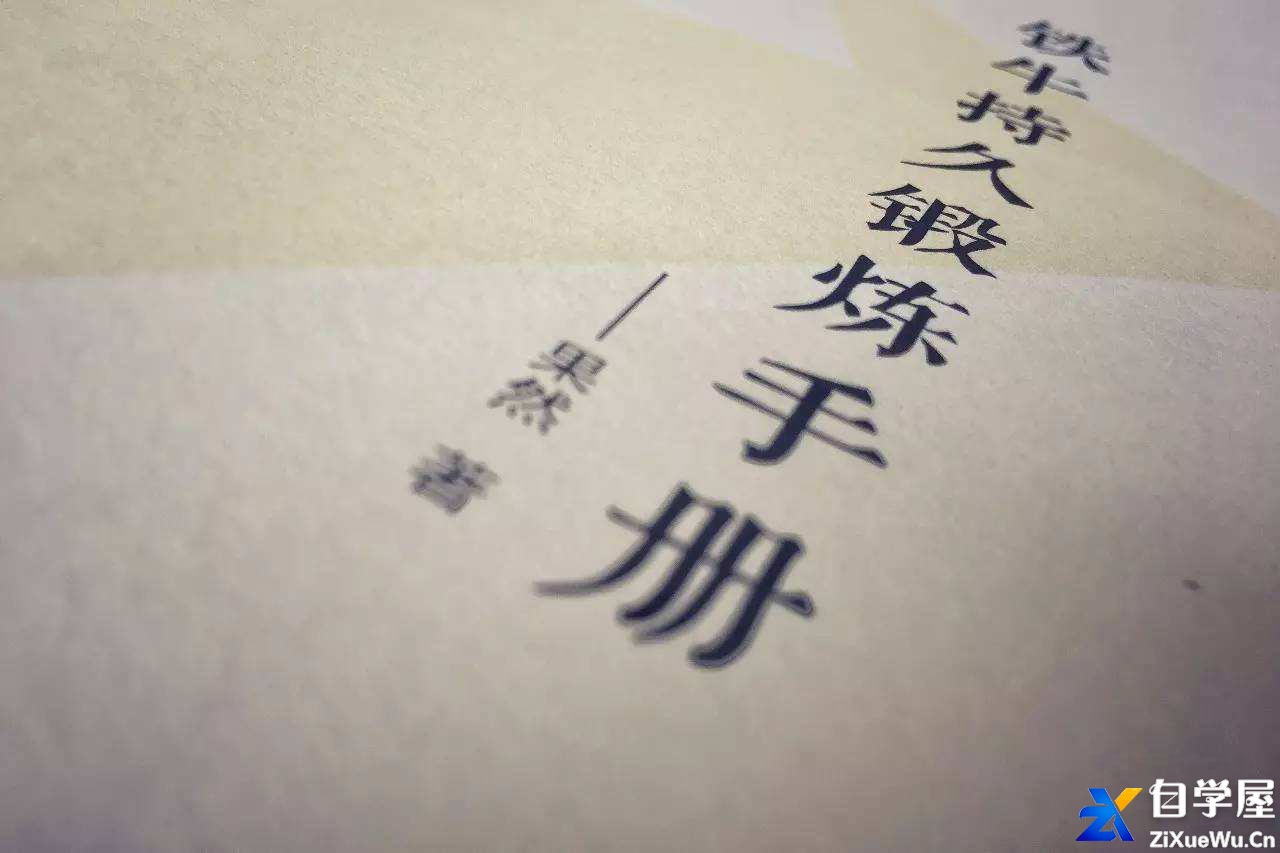 铁牛持久锻炼手册
—果然 著
自学屋
ZiXueWu.Cn